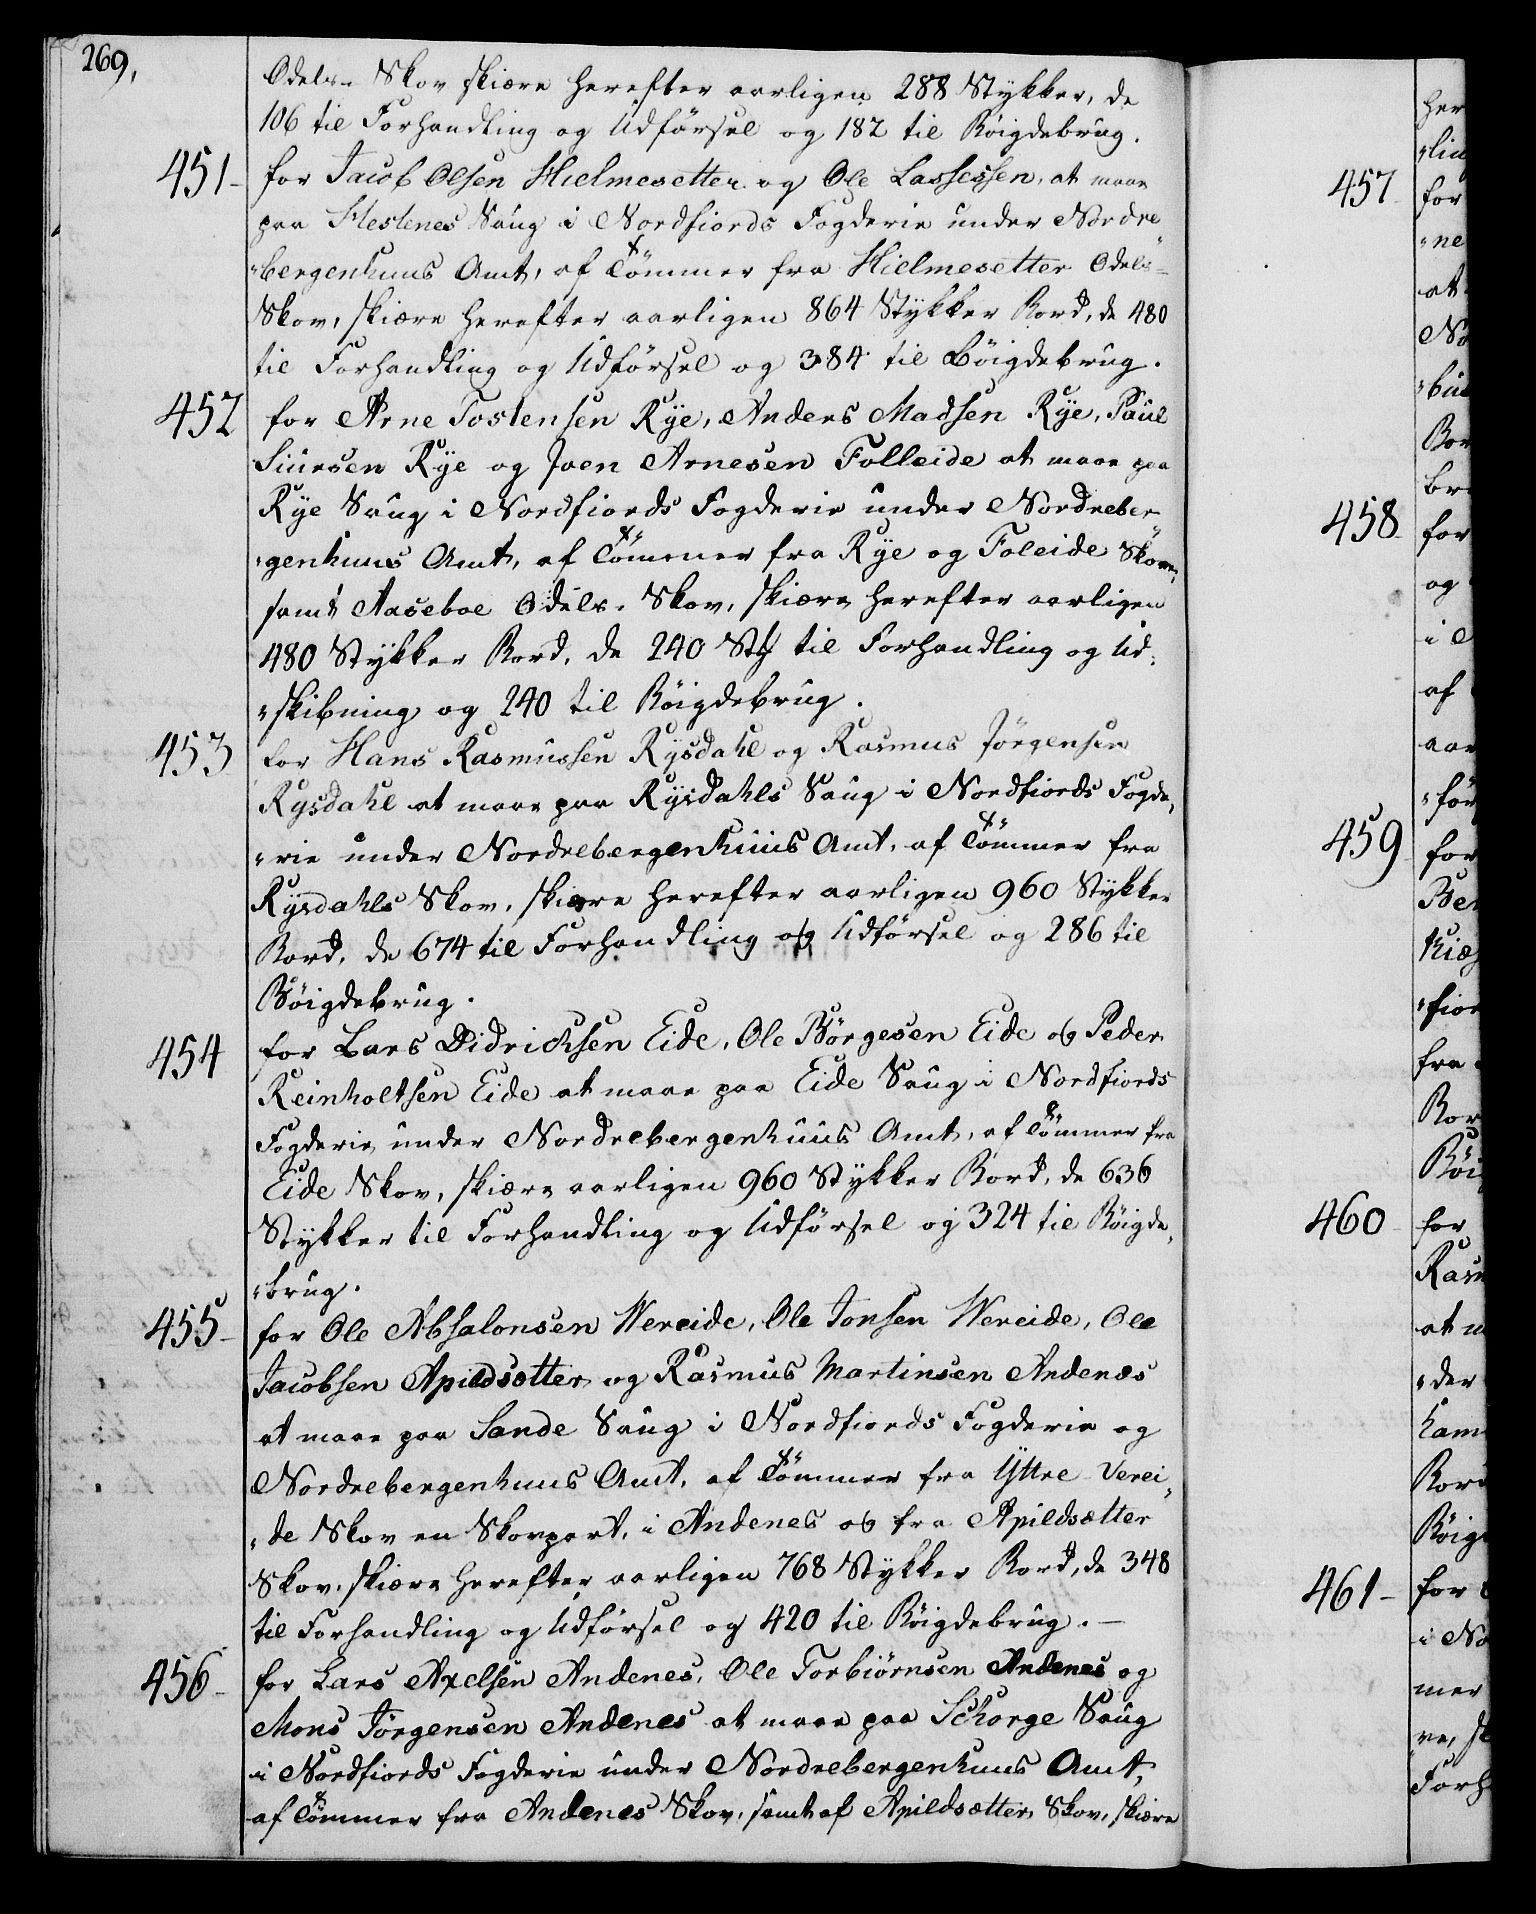 269,
Odels- Skov skiære herefter aarligen 288 Stykker, de
106 til Forhandling og Udförsel og 182 til Böigdebrug.
451- for Jacob Olsen Hielmesetter og Ole Lassessen, at maae
paa Hestenes Saug i Nordfiords Fogderie under Nordre
"bergenhuus Amt, af Tömmer fra Hielmesetter Odels-
Skov, skiære herefter aarligen 864 Stykker Bord, de 480
til Forhandling og Udförsel og 384 til Böigdebrug.
452 for Arne Tostensen Rye, Anders Madsen Rye, Paul
Siursen Rye og Joen Arnesen Folleide at maae paa
Rye Saug i Nordfiords Fogderie under Nordreber-
"genhuus Amt, af Tömmer fra Rye og Foleide Skove,
samt Aaseboe Odels- Skov, skiære herefter aarligen
480 Stykker Bord, de 240 Stk til Forhandling og Ud-
"skibning og 240 til Böigdebrug.
453 for Hans Rasmussen Rysdahl og Rasmus Jörgensen
Rysdahl at maae paa Rysdahls Saug i Nordfiords Fogde,
"rie under Nordrebergenhuus Amt, af Tömmer fra
Rysdahls Skov, skiære herefter aarligen 960 Stykker
Bord, de 674 til Forhandling og Udförsel og 286 til
Böigdebrug.
454 for Lars Didricksen Eide, Ole Börgesen Eide og Peder
Reinholtsen Eide at maae paa Eide Saug i Nordfiords
Fogderie under Nordrebergenhuus Amt, af Tömmer fra
Eide Skov, skiære aarligen 960 Stykker Bord, de 636
Stykker til Forhandling og Udförsel og 324 til Böigde,
"brug.
455- for Ole Absalonsen Wereide, Ole Jonsen Wereide, Ole
Jacobsen Apildsætter og Rasmus Martinsen Andenæs
at maae paa Sande Saug i Nordfiords Fogderie og
Nordrebergenhuus Amt, af Tömmer fra Yttre Verei"
"de Skov en Skovpart, i Andenes og fra Apildsætter
Skov, skiære herefter aarligen 768 Stykker Bord, de 348
til Forhandling og Udförsel og 420 til Böigdebrug. —
456- for Lars Axelsen Andenes, Ole Torbiörnsen Andenes og
Mons Jörgensen Andenes at maae paa Schorge Saug
i Nordfiords Fogderie under Nordrebergenhuus Amt,
af Tömmer fra Andenes Skov, samt af Apildsætter Skov, skiære
her
"lin
457 for
"ne
at
No
"bu
Bor
br
458 for
og
i
af
aar
"för
459 for
Ber
Kiæ
"fior
fra
Bor
Böi
460 for
Rasm
at m
"der
Kam
Bord
Böig
461- for
i No
mer
ve, sk
Forh